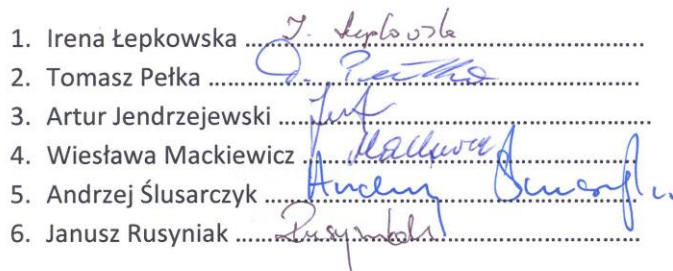 1. Irena Łepkowska ........ I. Łepkowska
2. Tomasz Pełka ........
3. Artur Jendrzejewski ........
4. Wiesława Mackiewicz ........ Mackiewicz
5. Andrzej Ślusarczyk ........ Andrzej
6. Janusz Rusyniak ........